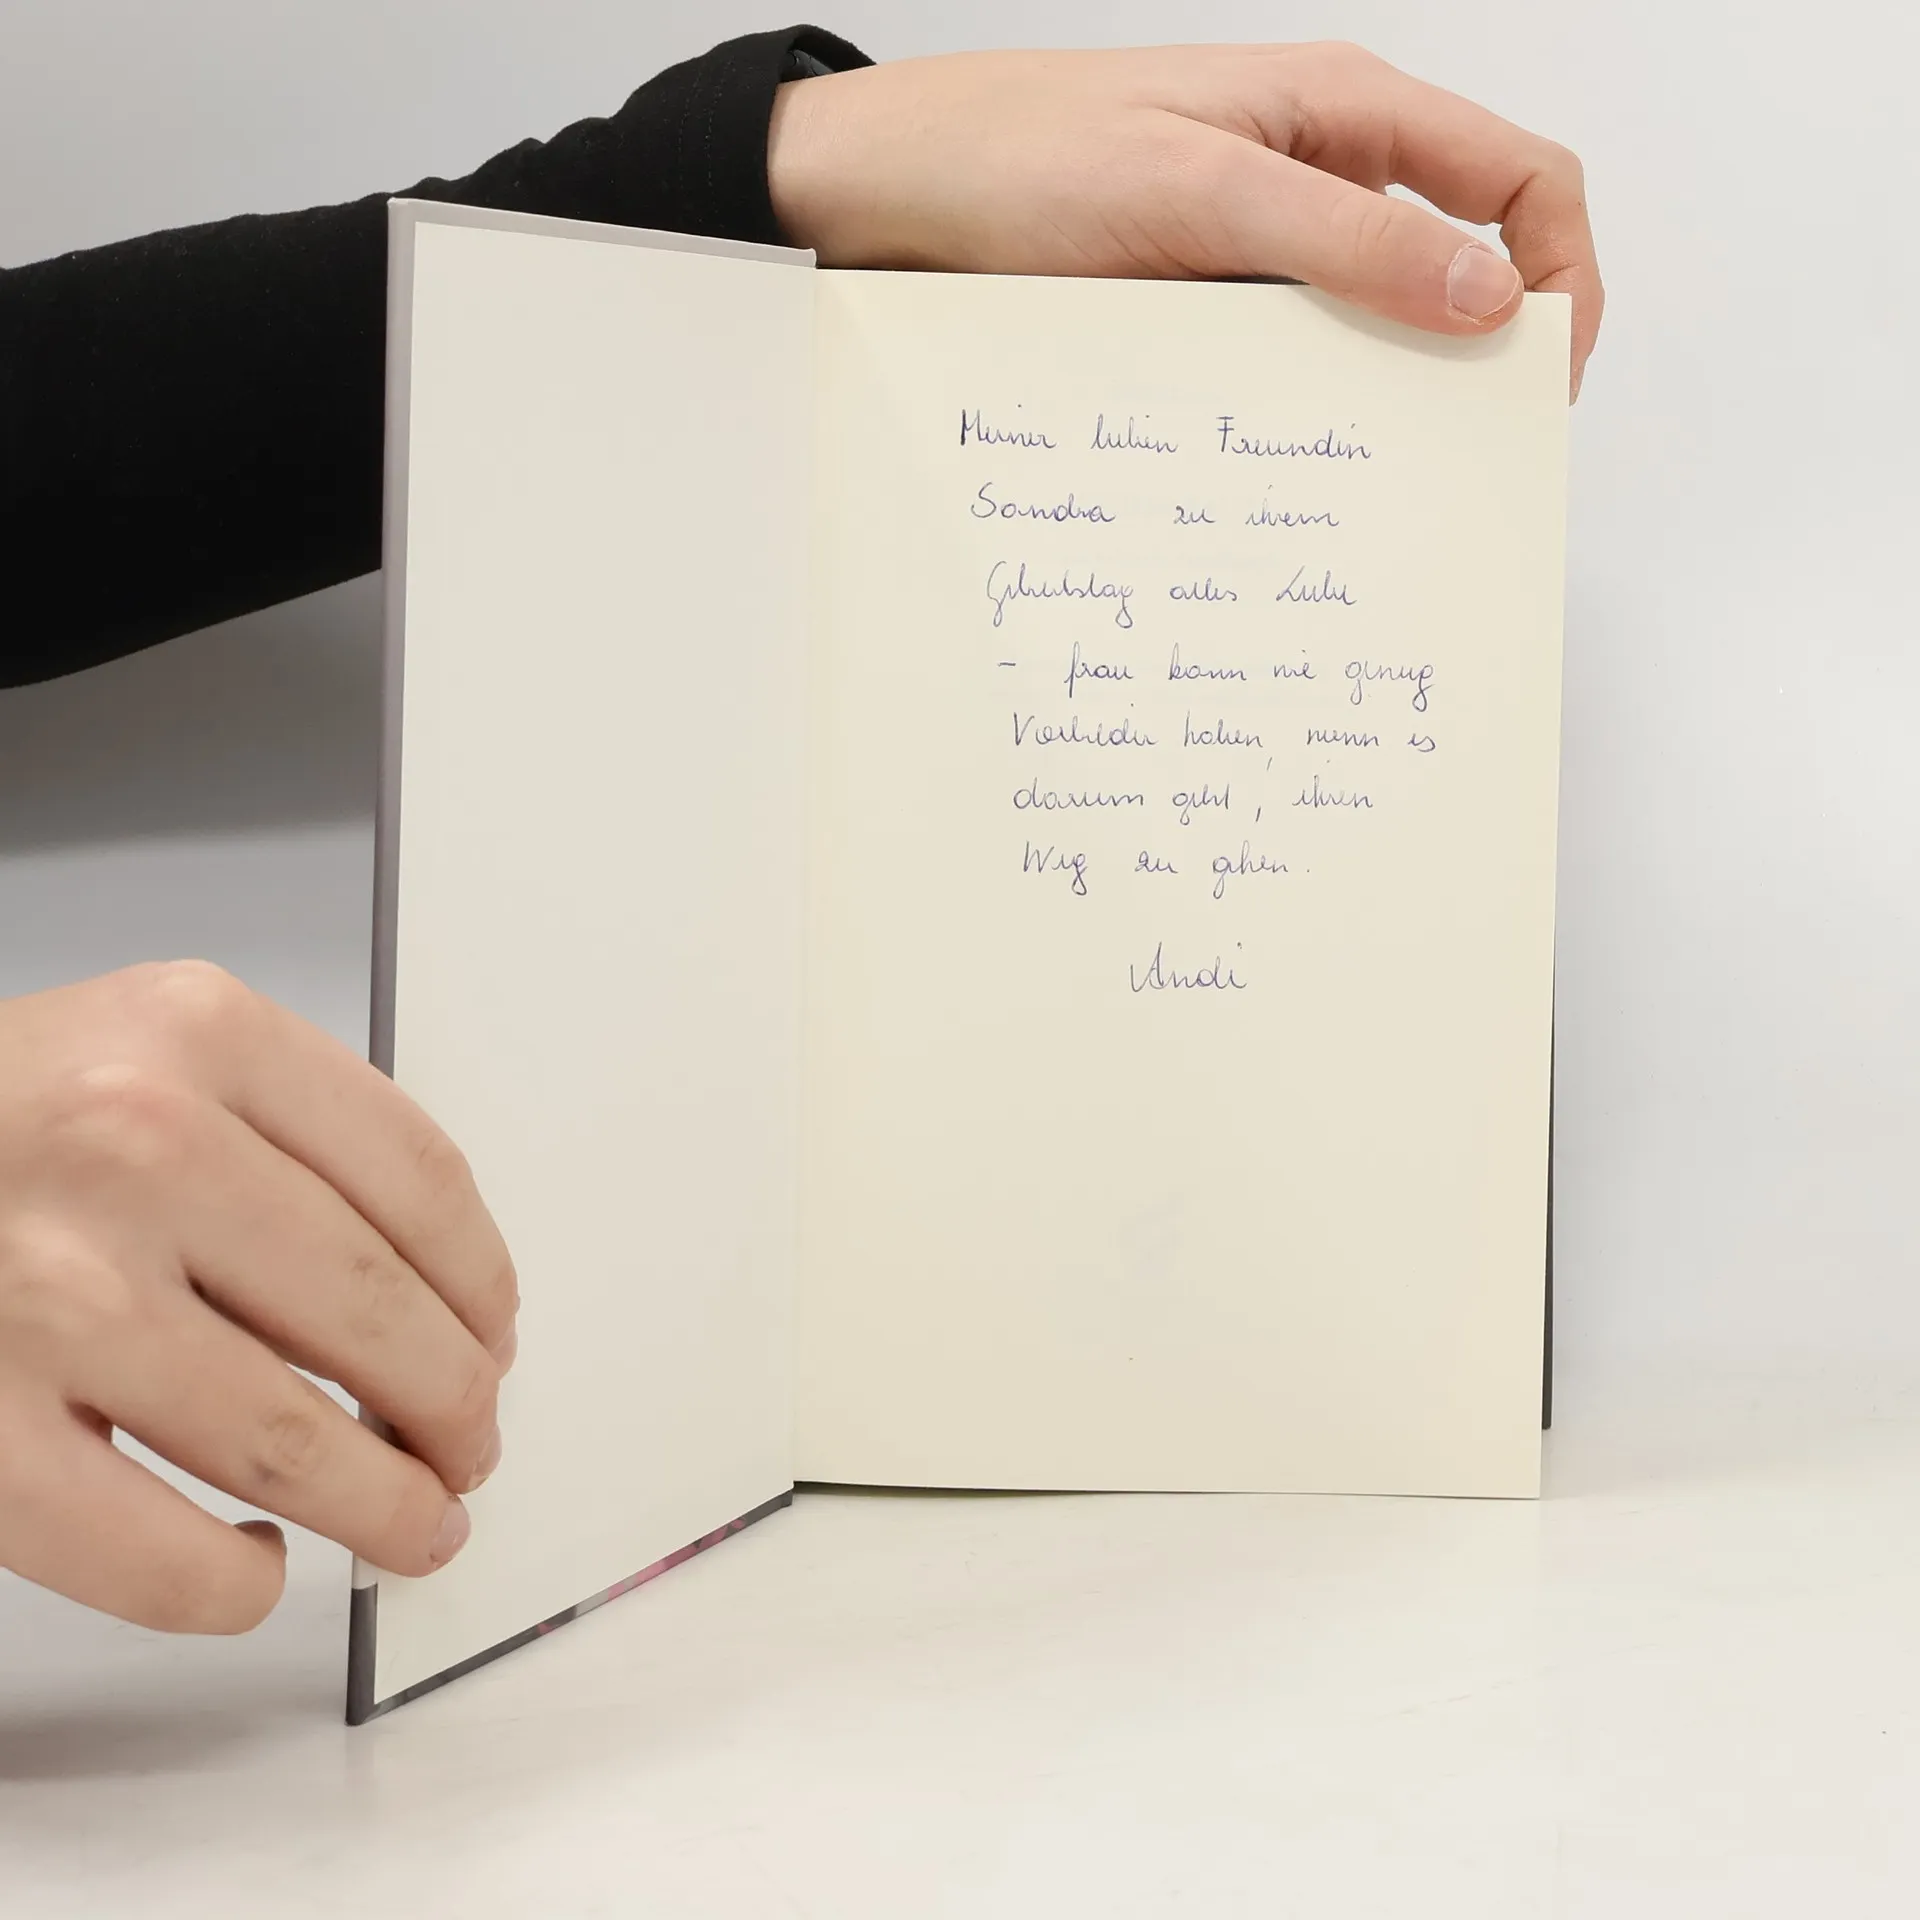 Meiner lieben Freundin
Sandra zu ihrem
Geburtstag alles Liebe
- frau kann nie genug
Vorbilder haben, wenn es
darum geht, ihren
Weg zu gehen.
Andi